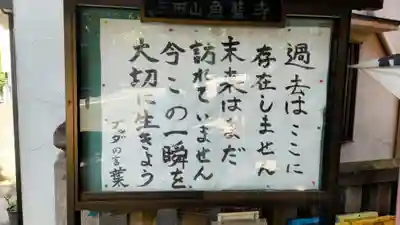 過去はここに
存在しません
未来はまだ
訪れていません
今この一瞬を
大切に生きよう
ブッダの言葉